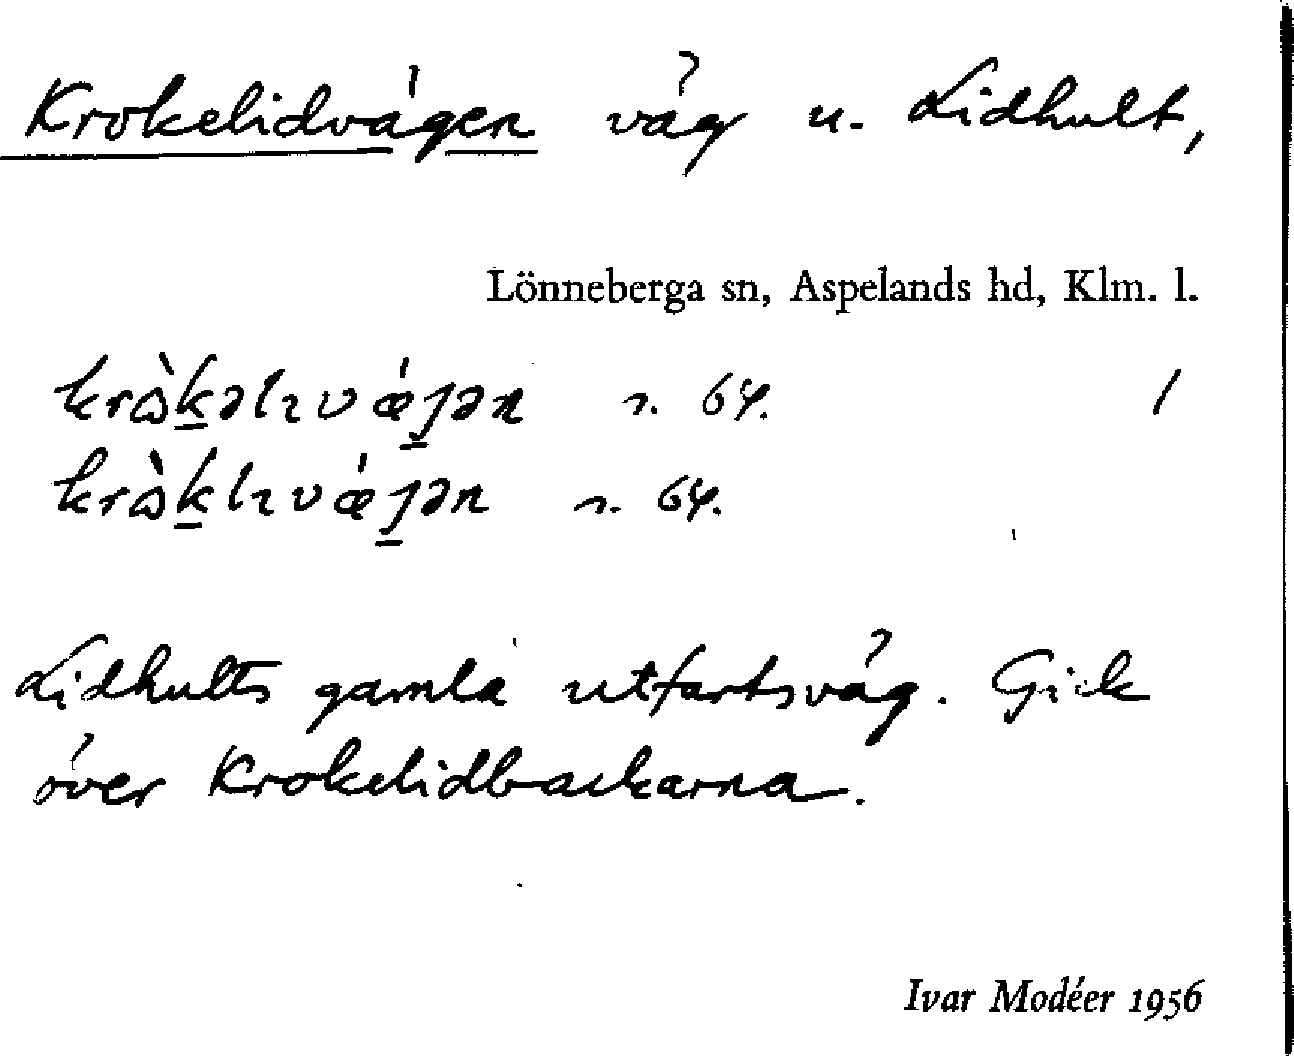 Krokelidvägen väg u. Lidhult,
Lönneberga sn, Aspelands hd, Klm. l.
krɷ̀k̲əlɩvǽȷ̲ən n. 64. /
krɷ̀k̲lɩvǽȷ̲ən n. 64.
Lidhults gamla utfartsväg. Gick
över Krokelidbackarna.
Ivar Modéer 1956